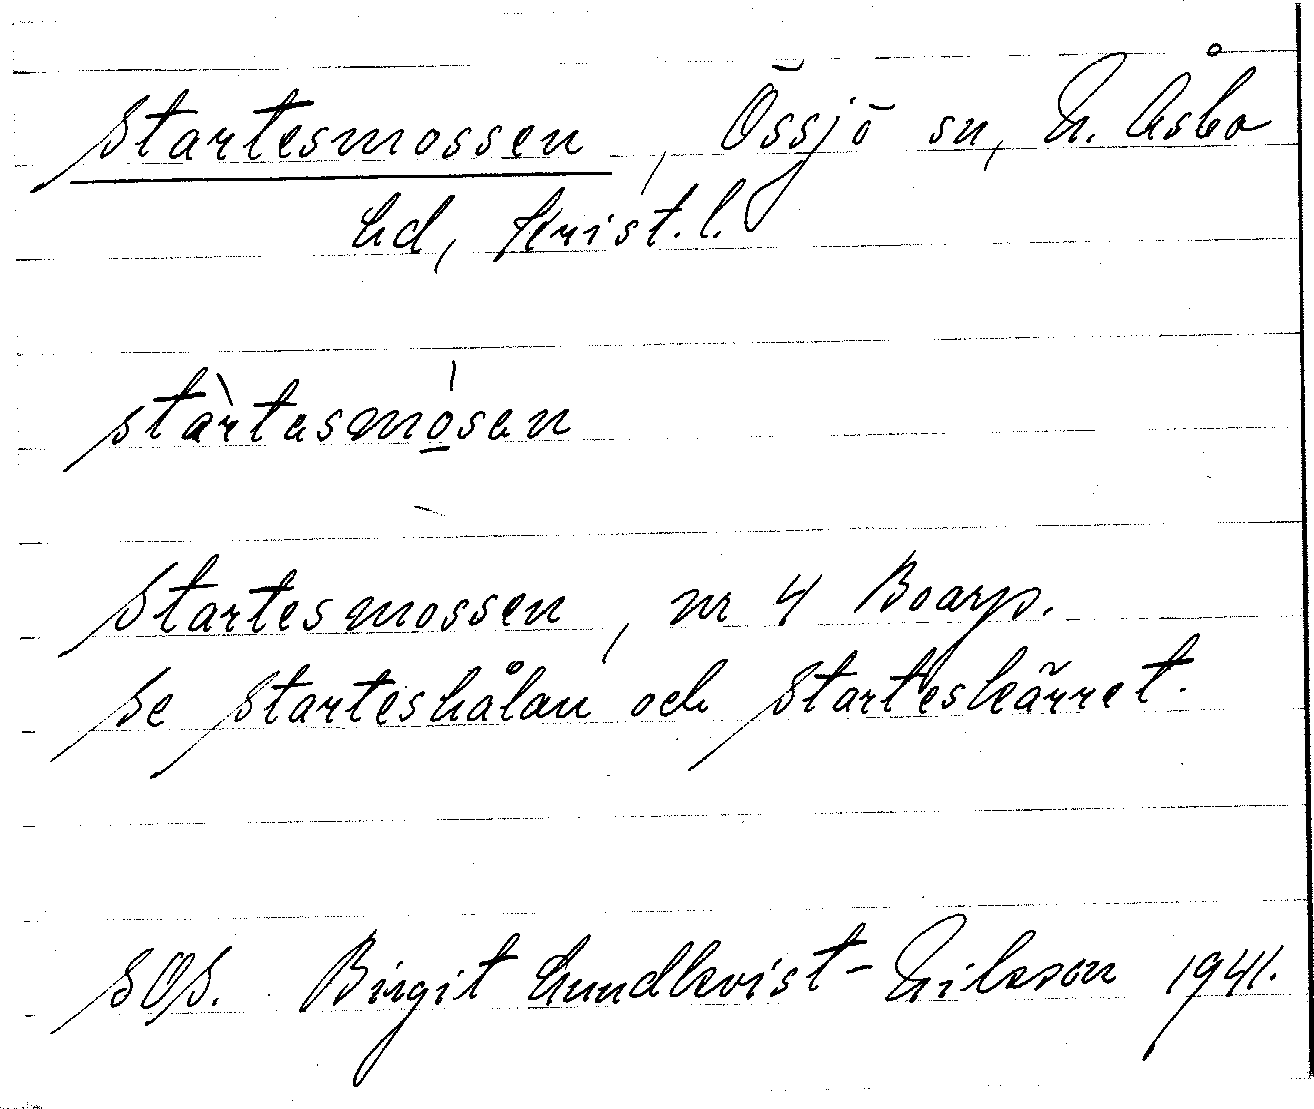 Startesmossen, Össjö sn, N. Åsbo
hd, Krist. l.
stàrtesmó̱sen
Startesmossen, nr 4 Boarp.
Se Starteshålan och Starteskärret.
SOS. Birgit Lundkvist-Nilsson 1941.